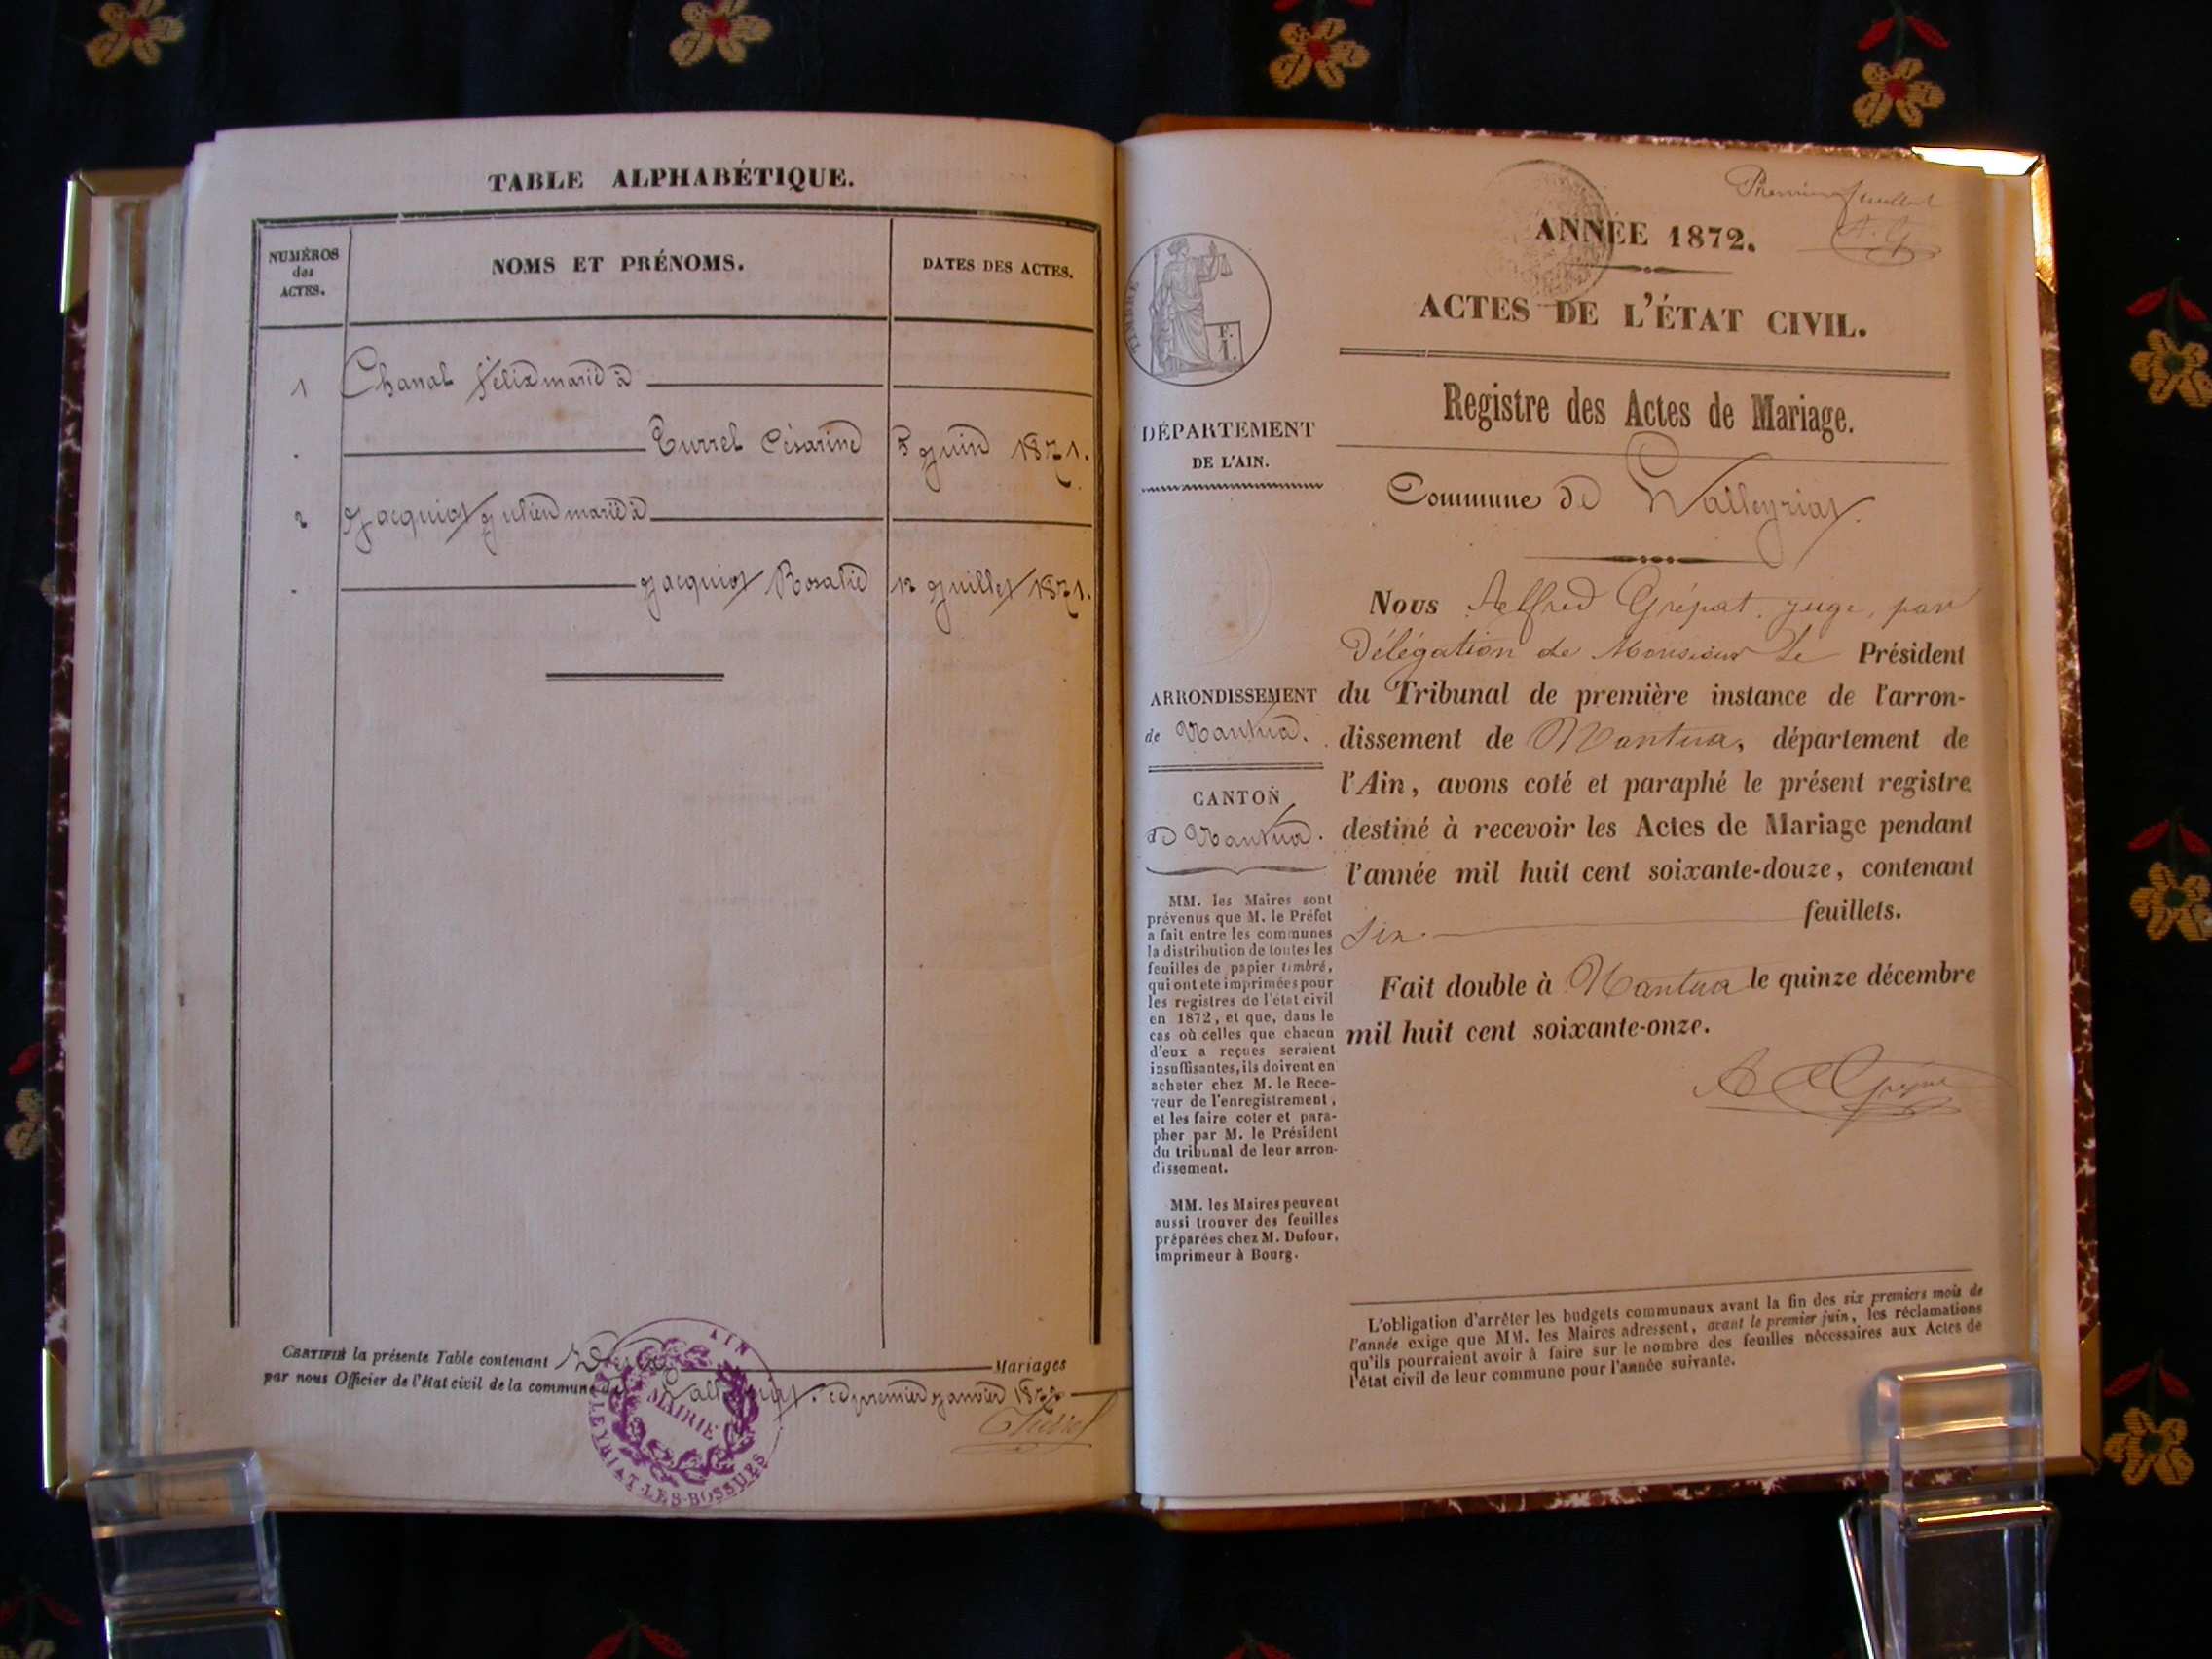 TABLE ALPHABÉTIQUE.
NUMÉROS
des
ACTES.
NOMS ET PRÉNOMS.
DATES DES ACTES.
1 Chanal Félix marié à
Turrel Césarine 5 Juin 1871.
2 Jacquiot Julien marié à
Jacquiot Rosalie 12 Juillet 1871.
CERTIFIÉ la présente Table contenant Deux Mariages
par nous Officier de l'état civil de la commune de Valleyriat. ce premier Janvier 1872
AIN
MAIRIE
LEYRIAT-LES-BOSSUES
Premier feuillet
A. G.
ANNÉE 1872.
ACTES DE L'ÉTAT CIVIL.
Registre des Actes de Mariage.
Commune de Valleyriat.
TIMBRE
F.
1.
DÉPARTEMENT
DE L'AIN.
ARRONDISSEMENT
de Nantua.
CANTON
de Nantua.
MM. les Maires sont
prévenus que M. le Préfet
a fait entre les communes
la distribution de toutes les
feuilles de papier timbré,
qui ont été imprimées pour
les registres de l'état civil
en 1872, et que, dans le
cas où celles que chacun
d'eux a reçues seraient
insuffisantes, ils doivent en
acheter chez M. le Rece-
veur de l'enregistrement,
et les faire coter et para-
pher par M. le Président
du tribunal de leur arron-
dissement.
MM. les Maires peuvent
aussi trouver des feuilles
préparées chez M. Dufour,
imprimeur à Bourg.
Nous Alfred Grépat, juge, par
Délégation de Monsieur le Président
du Tribunal de première instance de l'arron-
dissement de Nantua, département de
l'Ain, avons coté et paraphé le présent registre
destiné à recevoir les Actes de Mariage pendant
l'année mil huit cent soixante-douze, contenant
six feuillets.
Fait double à Nantua le quinze décembre
mil huit cent soixante-onze.
L'obligation d'arrêter les budgets communaux avant la fin des six premiers mois de
l'année exige que MM. les Maires adressent, avant le premier juin, les réclamations
qu'ils pourraient avoir à faire sur le nombre des feuilles nécessaires aux Actes de
l'état civil de leur commune pour l'année suivante.